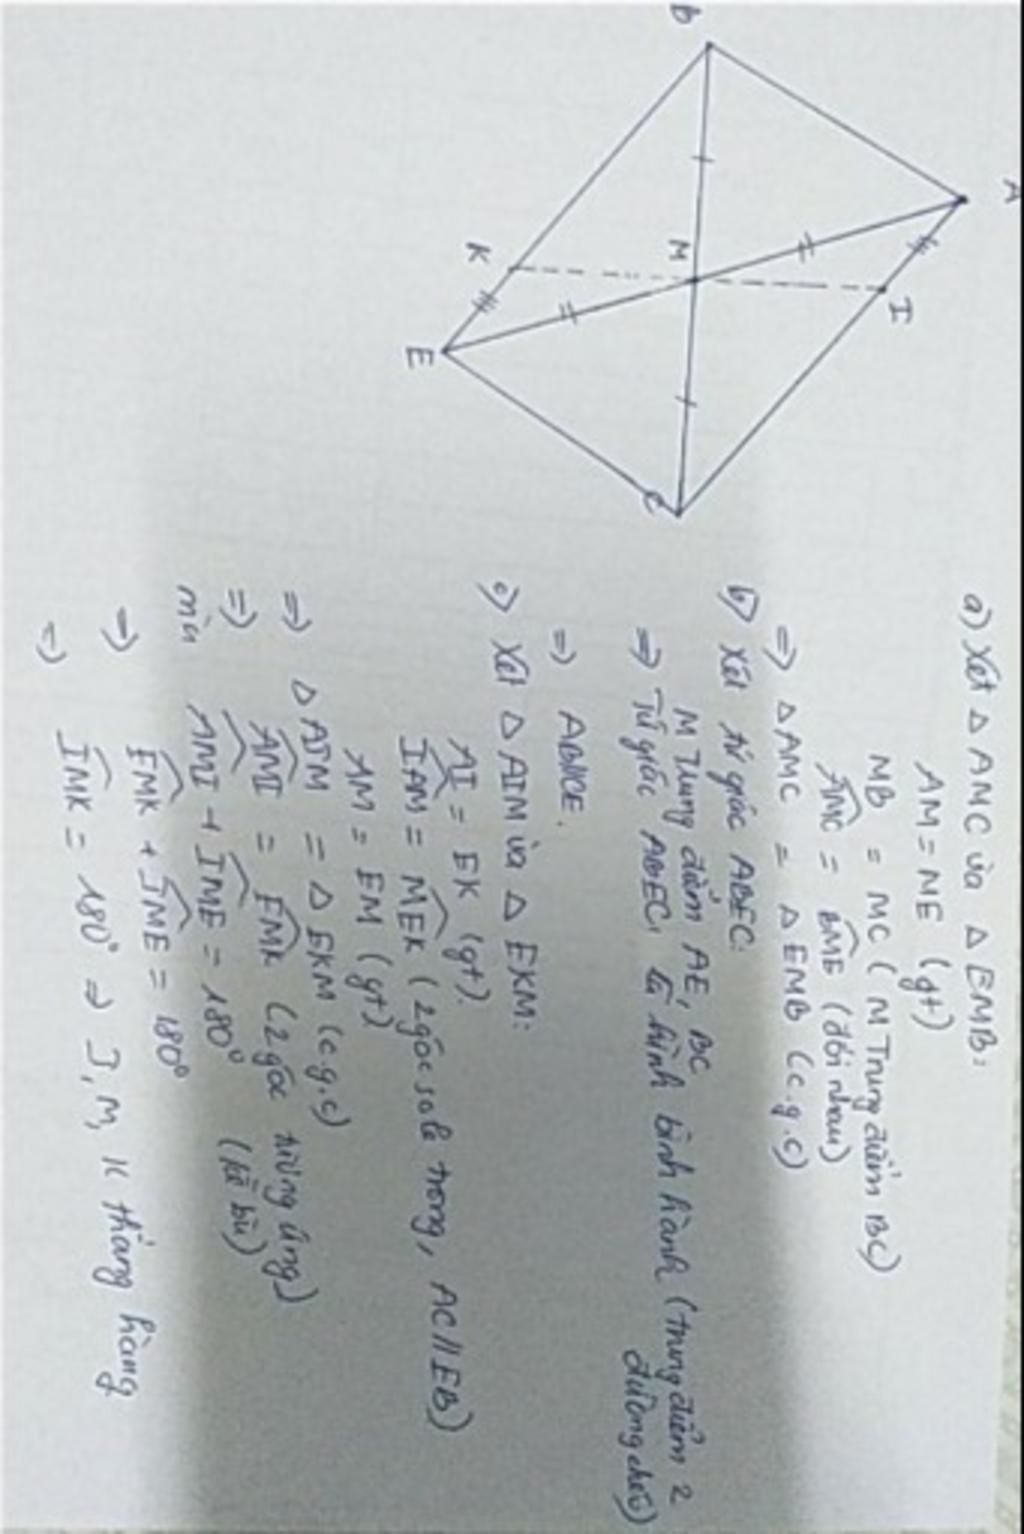 A
B
I
M
K
E
C
a) Xét Δ AMC và Δ EMB:
AM = ME (gt)
MB = MC (M Trung điểm BC)
AMC = BME (đối nhau)
=) Δ AMC = Δ EMB (c.g.c)
b) Xét tứ giác ABEC:
M Trung điểm AE, BC
=) Tứ giác ABEC là hình bình hành (trung điểm 2
đường chéo)
=) AB//CE.
c) Xét Δ AIM và Δ EKM:
AI = EK (gt).
IAM = MEK (2 góc so le trong, AC // EB)
AM = EM (gt)
=) Δ AIM = Δ EKM (c.g.c)
=) AMI = EMK (2 góc tương ứng)
mà AMI + IME = 180° (kề bù)
=) EMK + IME = 180°
=) IMK = 180° => I, M, K thẳng hàng